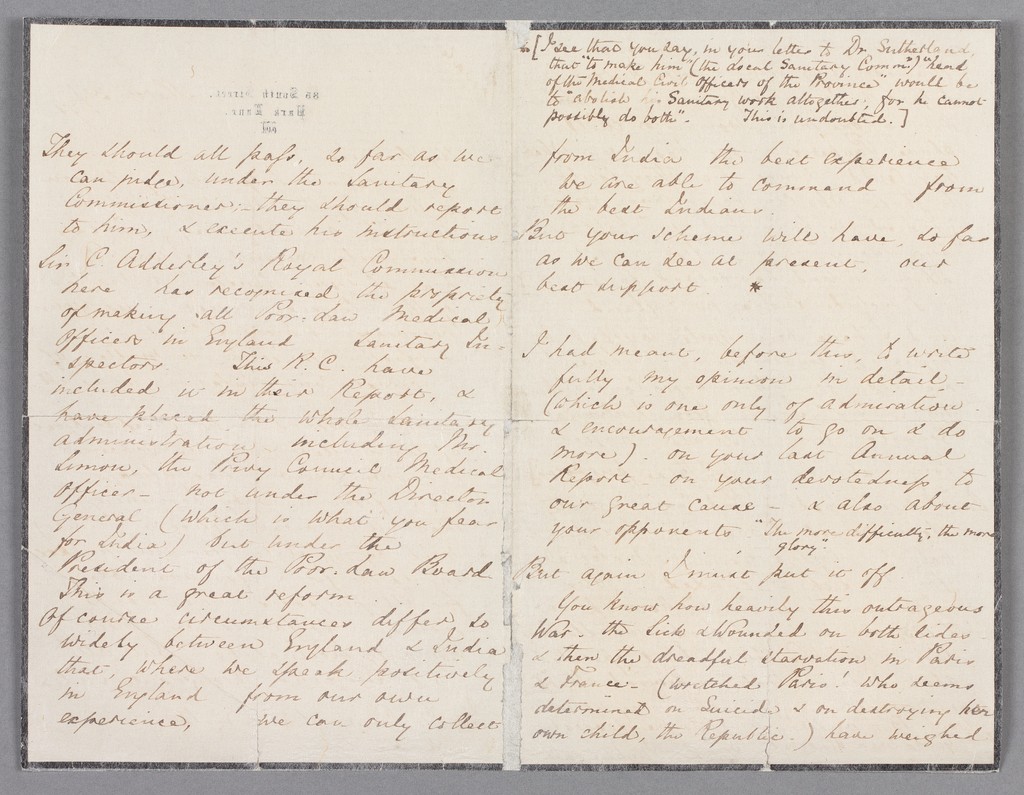 35 South Street,
Park Lane,
W.
They should all pass, so far as we
can judge, under the Sanitary
Commissioner; - they should report
to him, & execute his instructions.
Sir C. Adderley's Royal Commission
here has recognized the propriety
of making all Poor-Law Medical
Officers in England Sanitary In-
-spectors This R.C. have
included it in their Report, &
have placed the whole Sanitary
administration including Mr.
Simon, the Privy Council Medical
Officer - not under the Director
General (which is what you fear
for India) but under the
President of the Poor-Law Board
This is a great reform.
Of course circumstances differ so
widely between England & India
that, where we speak positively
in England from our own
experience, we can only collect
* [I see that you say, in your letter to Dr. Sutherland,
that "to make him" (the local Sanitary Commr.) "head
of the Medical Civil Officers of the Province" would be
to "abolish Sanitary work altogether; for he cannot
possibly do both". This is undoubted.]
from India the best experience
we are able to command from
the best Indians.
But your scheme will have, so far
as we can see at present, our
best support. *
I had meant, before this, to write
fully my opinion in detail -
(which is one only of admiration
& encouragement to go on & do
more). on your last Annual
Report - on your devotedness to
our great cause - & also about
your opponents "The more difficulty, the more
glory."
But again I must put it off.
You know how heavily this outrageous
War - the Sick & Wounded on both sides -
& then the dreadful starvation in Paris
& France - (wretched Paris! who seems
determined on suicide & on destroying her
own child, the Republic.) have weighed